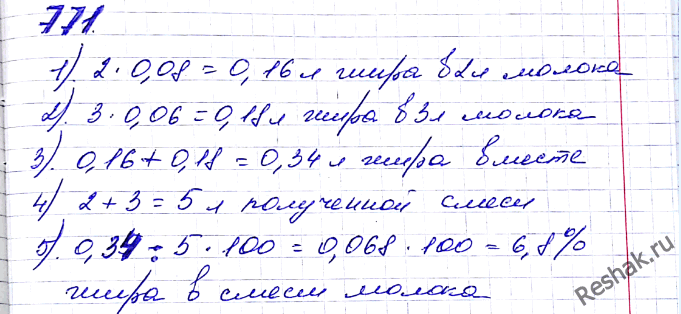 771.
1). 2 · 0,08 = 0,16 л жира в 2л молока
2). 3 · 0,06 = 0,18 л жира в 3л молока
3). 0,16 + 0,18 = 0,34 л жира вместе
4). 2 + 3 = 5 л полученной смеси
5). 0,34 : 5 · 100 = 0,068 · 100 = 6,8%
жира в смеси молока
Reshak.ru